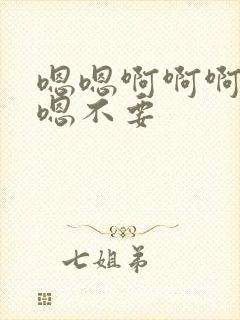 嗯嗯啊啊啊
嗯不要
七姐弟